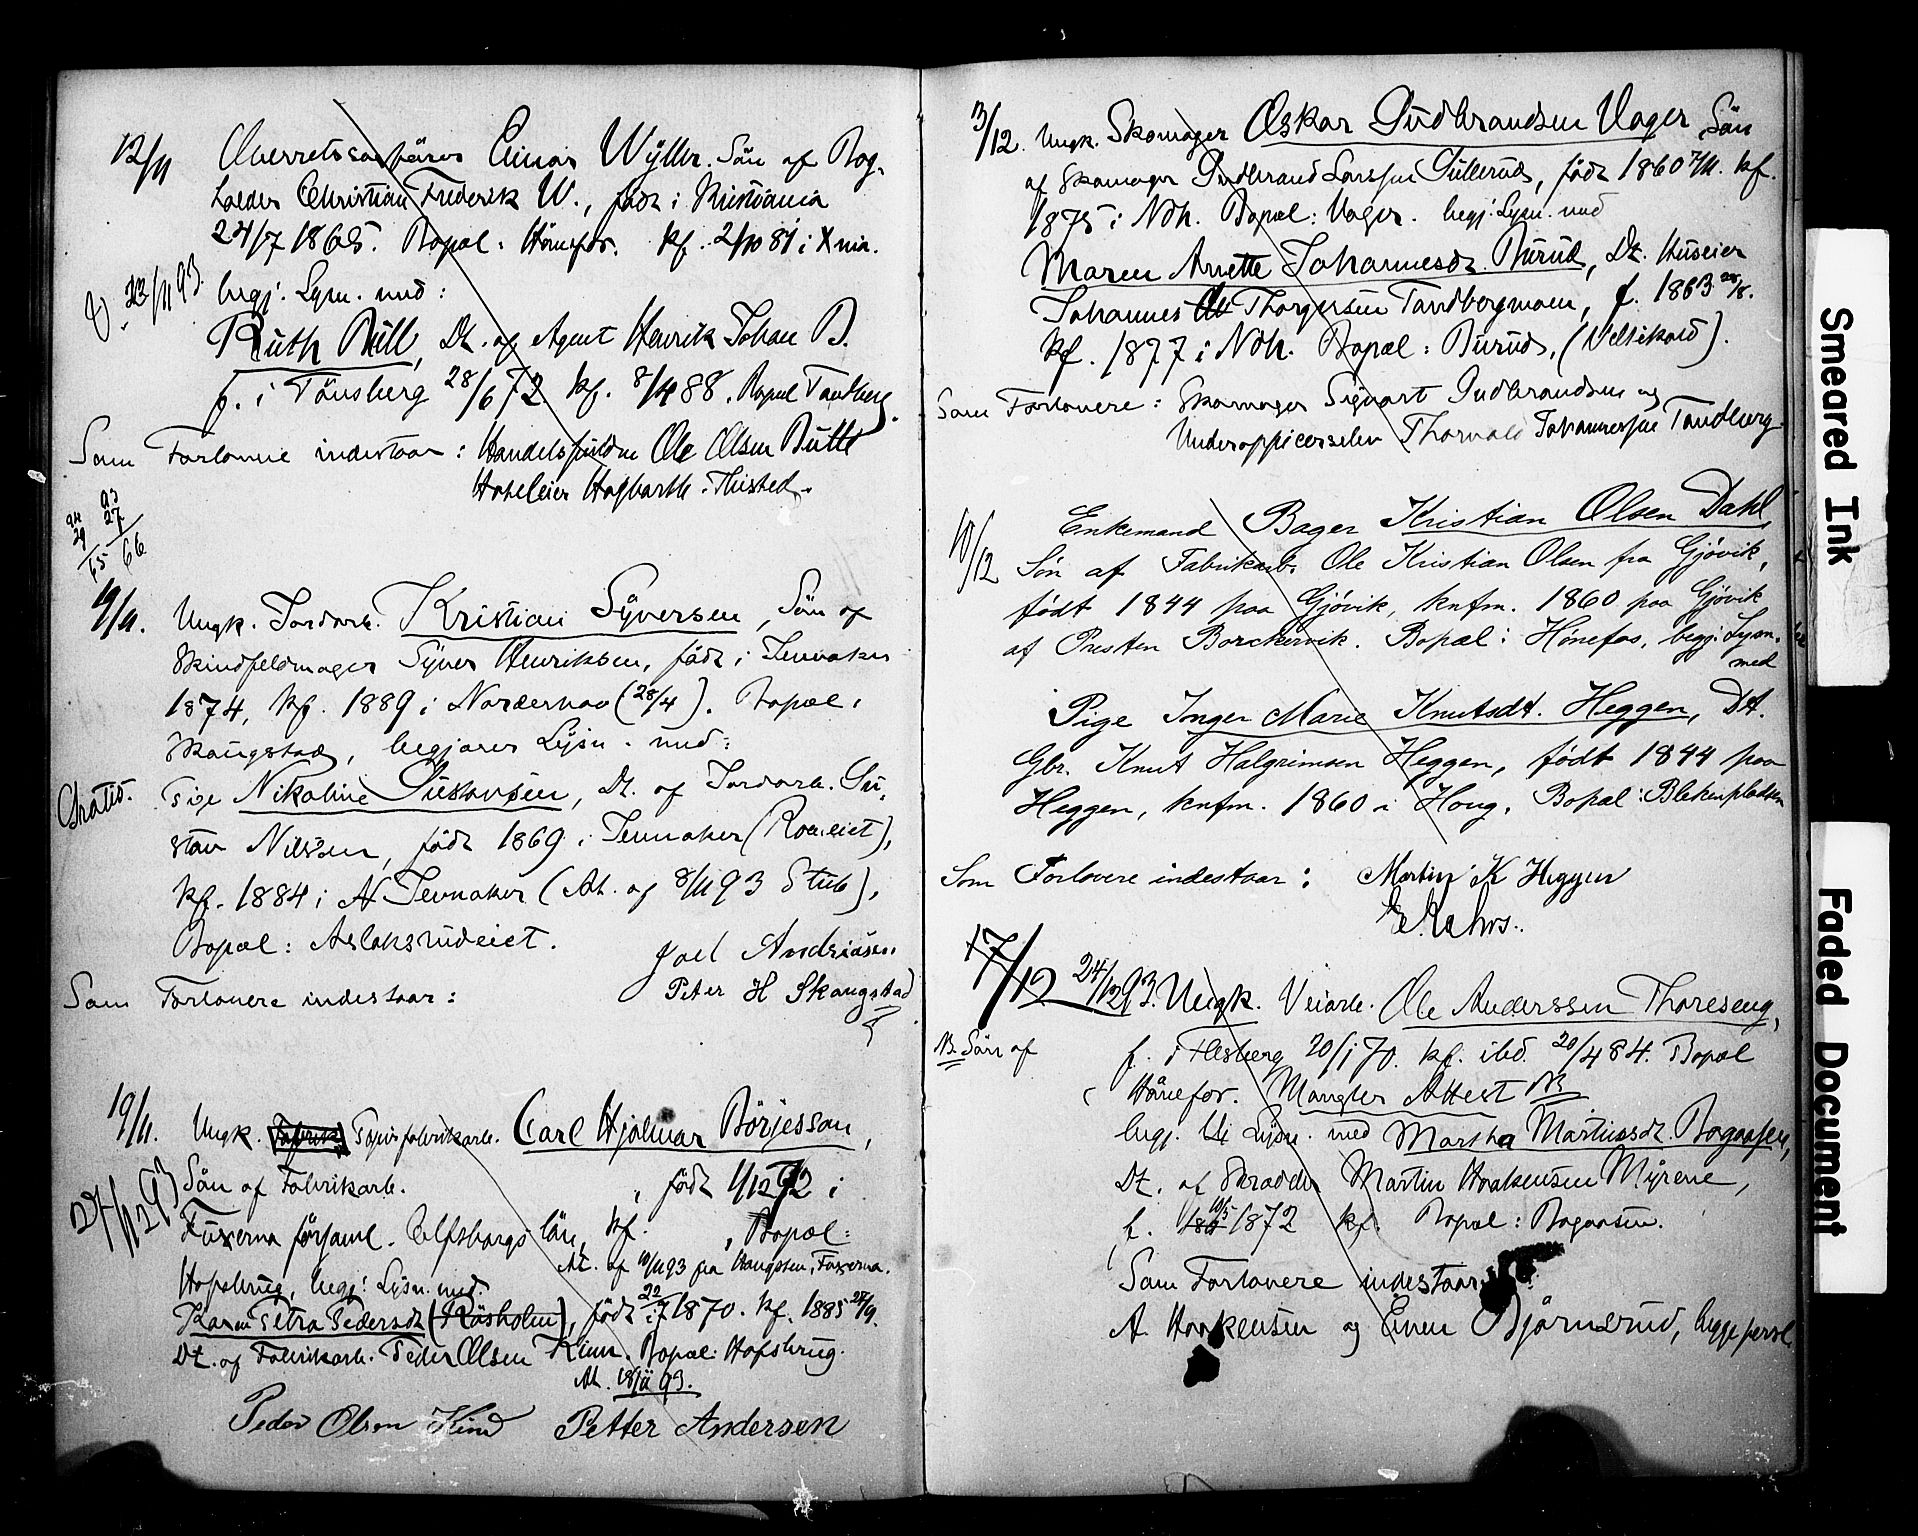 12/11 Overretssagfører Einar Wyller. Søn af Bog-
holder Christian Frederik W., født i Kristiania
24/7 1865. Bopæl: Hønefos. kf. 2/10 81 i Xnia.
V. 23/11 93. begj. Lysn. med:
Ruth Bull, Dt. af Agent Henrik Johan B.
f. i Tønsberg 28/6 72 kf. 8/4 88. Bopæl Tandberg.
Som Forlovere indestaar: Handelsfuldm Ole Olsen
Hoteleier Hagbarth Thisted.
93
27
66
9/11. Ungk. Jordarb. Kristian Syversen, Søn af
Skindfeldmager Syver Henriksen, født i Jevnaker
1874, kf. 1889 i Norderhov (28/4). Bopæl:
Skaugstad, begjærer Lysn. med:
Gratis. Pige Nikoline Gustavsen, Dt. af Jordarb. Gu-
stav Nilsen, født 1869 i Jevnaker
kf. 1884 i N Jevnaker (At. af 8/11 93 Stub),
Bopæl: Aslaksrudeiet. Joel Andriasen
Som Forlovere indestaar: Peter H Skaugstad
19/11. Ungk. Papirfabrikarb. Carl Hjalmar Börjesson,
27/12 93 Søn af Fabrikarb. , født 1/12 72 i
Fuxerna församl. Elfsborgs län, kf. , Bopæl:
At. af 10/11 93 fra Fuxerna.
Hofsbrug, begj. Lysn. med.
Karen Petra Pedersdt (Røsholm), født 22/7 1870. kf. 1885 27/9.
Dt. af Fabrikarb. Peder Olsen Kinn. Bopæl: Hofsbrug.
At. 18/11 93.
Peder Olsen Kind Petter Andersen
3/12. Ungk. Skomager Oskar Gudbrandsen Vager Søn
af Skomager Gudbrand Larssen Gullerud, født 1860 7/11. kf.
1875 i Ndh. Bopæl: Vager. begj. Lysn. med
Maren Anette Johannesdt. Burud, Dt. Huseier
Johannes Thorgersen Tandbergmoen, f. 1863 28/8.
kf. 1877 i Ndh. Bopæl: Burud, (Velsikold).
Som Forlovere: Skomager Sigvart Gudbrandsen og
Underofficerselev Thorvald Johannessen Tandberg
10/12 Enkemand Bager Kristian Olsen Dahl,
Søn af Fabrikarb. Ole Kristian Olsen fra Gjøvik,
født 1844 paa Gjøvik, knfm. 1860 paa Gjøvik
af Presten Borchervik. Bopæl: Hønefos, begj. Lysn.
med
Pige Inger Marie Knutsdt. Heggen, Dt.
Gbr. Knut Halgrimsen Heggen, født 1844 paa
Heggen, knfm. 1860 i Houg, Bopæl: Blekenpladsen
Som Forlovere indestaar: Martin K Heggen
17/12 24/12 93. Ungk. Veiarb. Ole Anderssen Thoreseng,
NB. Søn af f. i Flesberg 20/1 70. kf. ibd. 20/4 84. Bopæl
Hønefos. Mangler Attest NB
begj. Lysn. med Martha Martinsdt. Bagaasen,
Dt. af Skrædder Martin Haakensen Myrene,
f. 10/5 1872 kf. Bopæl: Bagaasen.
Som Forlovere indestaar:
A. Haakensen og Even Bjørnsrud, begge
Smeared Ink
Faded Document